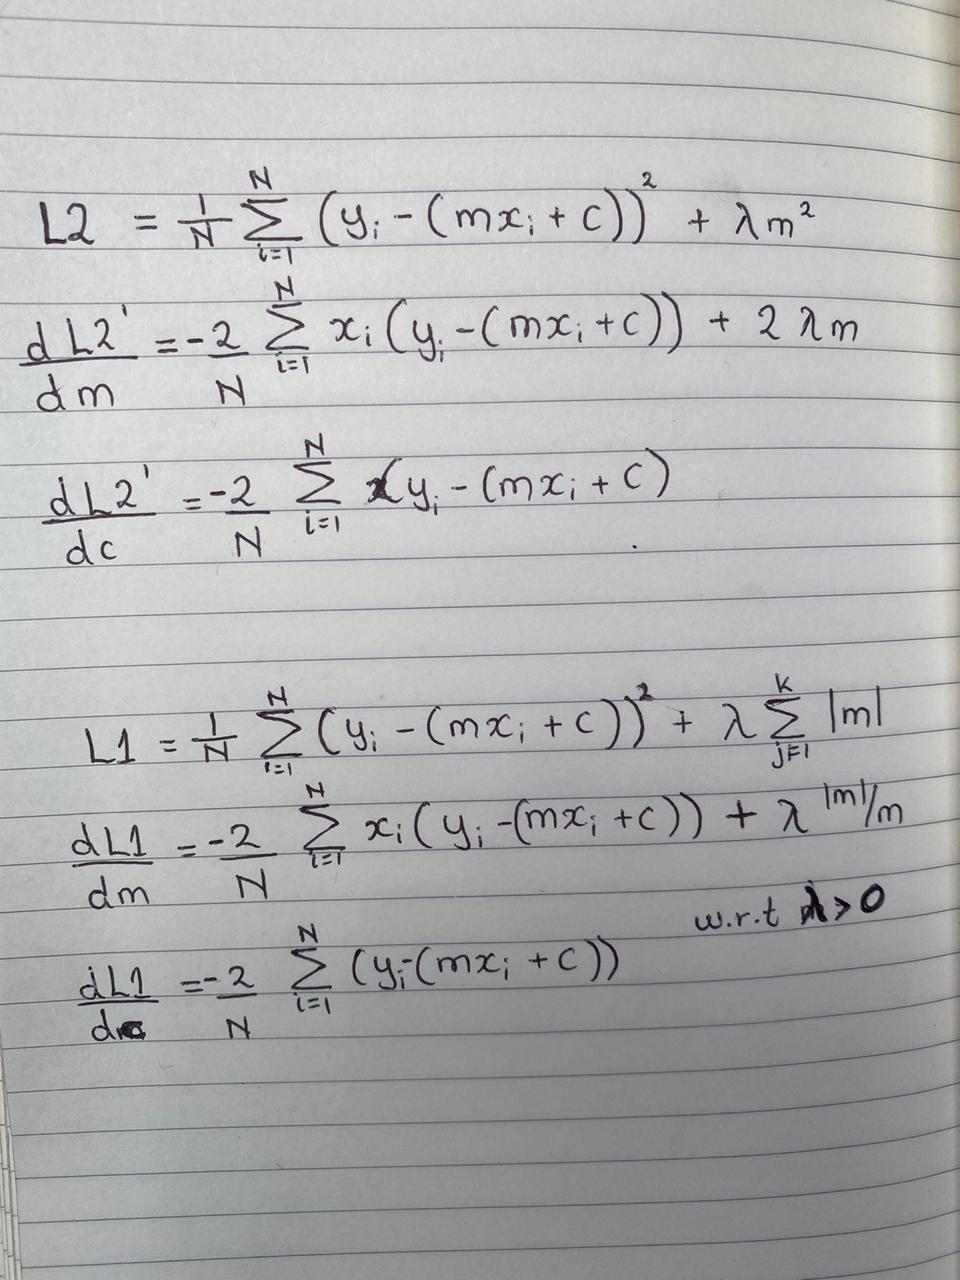 L2 = 1/N ∑_{i=1}^{N} (y_i - (mx_i + c))² + λm²
dL2'/dm = -2/N ∑_{i=1}^{N} x_i (y_i - (mx_i + c)) + 2λm
dL2'/dc = -2/N ∑_{i=1}^{N} (y_i - (mx_i + c)
L1 = 1/N ∑_{i=1}^{N} (y_i - (mx_i + c))² + λ ∑_{j=1}^{k} |m|
dL1/dm = -2/N ∑_{i=1}^{N} x_i (y_i - (mx_i + c)) + λ |m|/m
w.r.t λ > 0
dL1/dc = -2/N ∑_{i=1}^{N} (y_i - (mx_i + c))